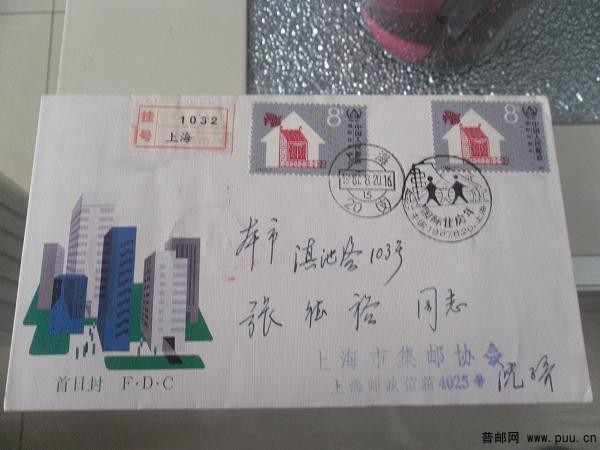 挂号
1032
上海
8
中国人民邮政
8
中国人民邮政
上海
87.8.20.16
15
20(支)
国际住房年
中国1987.8.20.上海
本市
滇池路103号
张 征 裕 同志
上海市集邮协会
上海邮政信箱4025号
沈
首日封 F·D·C
普邮网 www.puu.cn